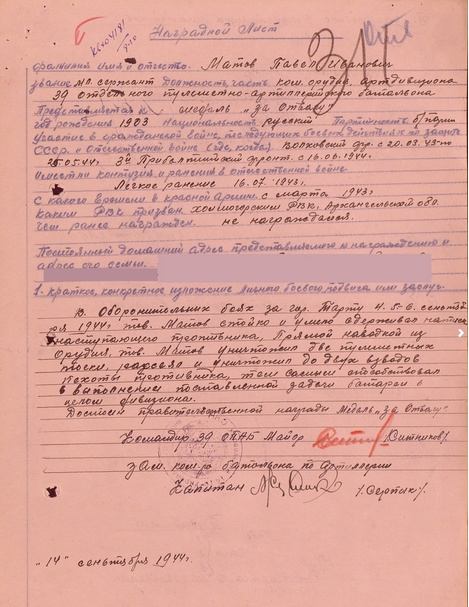 Наградной Лист
фамилия имя и отчество. Матов Павел Иванович
звание мл. сержант должность, часть ком. орудия артдивизиона
39 отдельного пулеметно-артиллерийского батальона
Представляется к медаль „за Отвагу"
год рождения 1903 национальность русский Партийность б/парт
участие в гражданской войне, последующих боевых действиях по защите
СССР и отечественной войне (где, когда) Волховский фр. с 20.03.43 по
25.05.44г. 3й Прибалтийский фронт. с 16.06.1944г.
имеет ли контузия и ранения в отечественной войне
Легкое ранение 16.07.1943г.
С какого времени в красной Армии. с марта 1943г
Каким РВК призван. Холмогорским РВК, Архангельской обл.
Чем ранее награжден. не награждался.
Постоянный домашний адрес представляемого к награждению и
адрес его семьи.
1. краткое, конкретное изложение личного боевого подвига или заслуг
В оборонительных боях за гор. Тарту 4.5-6. сентяб
ря 1944г. тов. Матов стойко и умело сдерживал натиск
наступающего противника, Прямой наводкой из
Орудия, тов. Матов уничтожил две пулеметных
точки, рассеял и уничтожил до двух взводов
пехоты противника, тем самым способствовал
в выполнении поставленной задачи батареи в
целом дивизиона.
Достоин правительственной награды Медаль „за Отвагу"
Командир 39 ОПАБ Майор /Ситников/.
зам. ком-ра батальона по артиллерии
Капитан /Серпик/.
„14" сентября 1944г.